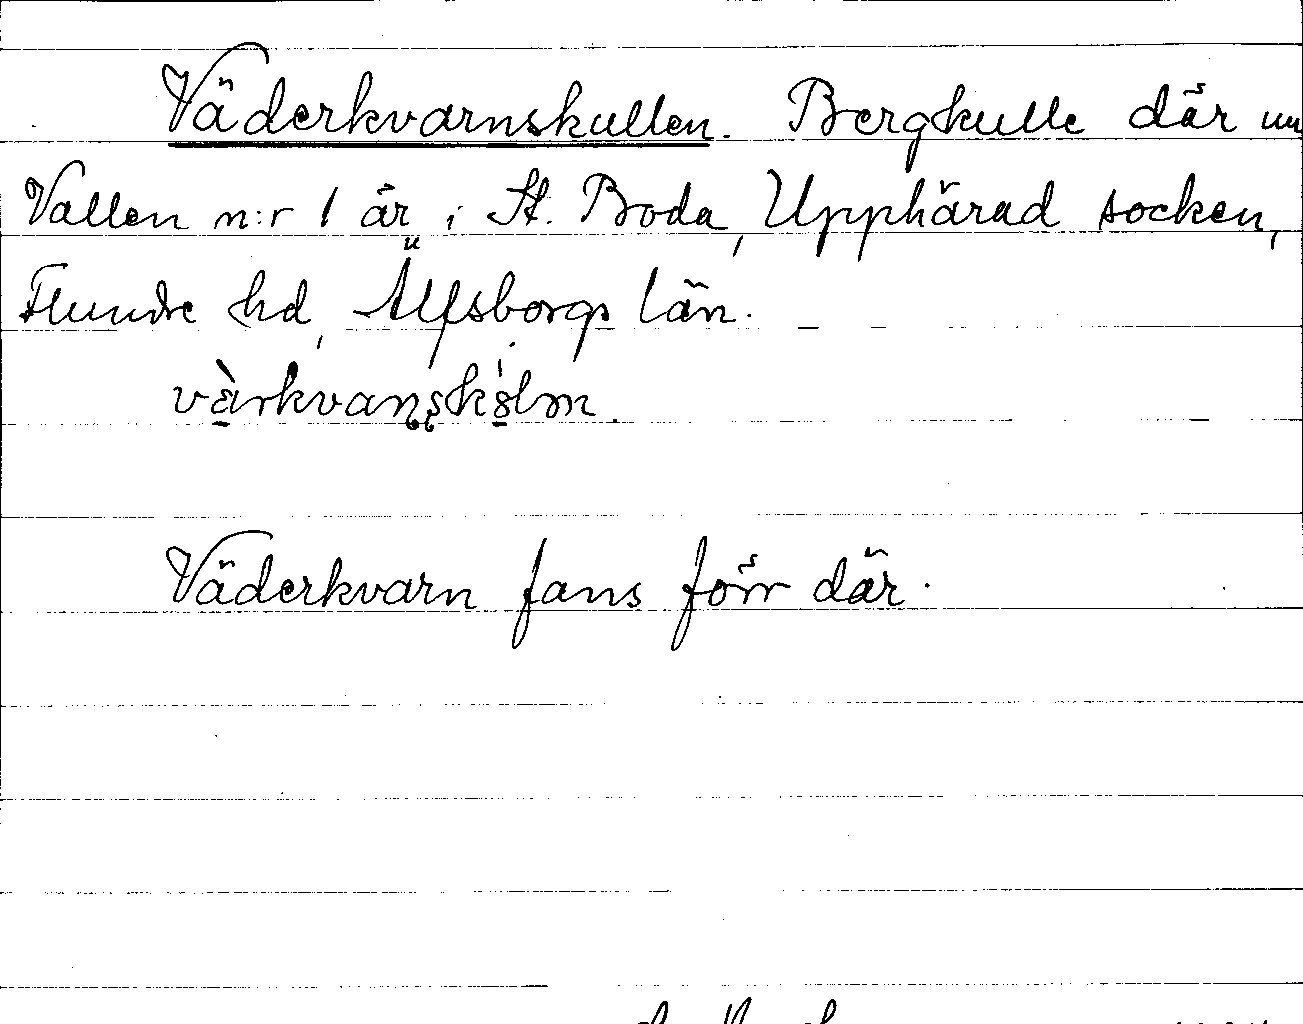 Väderkvarnskullen. Bergkulle där nu
Vallen n:r 1 är i St. Boda, Upphärad socken,
Flundre hd, Älfsborgs län.
Väderkvarn fans förr där.